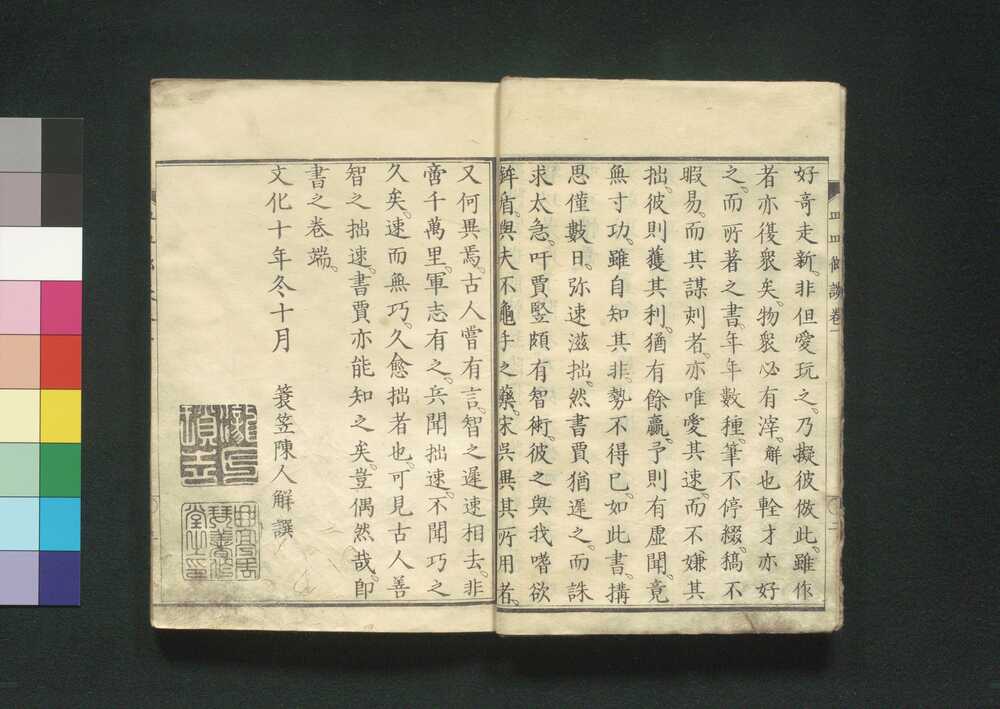 好奇走新。非但愛玩之。乃擬彼倣此。雖作
者亦復衆矣。物衆必有滓。解也輇才亦好
之。而所著之書。年年數種。筆不停綴。稿不
暇易。而其謀刻者。亦唯愛其速。而不嫌其
拙。彼則獲其利。猶有餘贏。予則有虛聞。竟
無寸功。雖自知其非。勢不得已。如此書。搆
思僅數日。弥速滋拙。然書賈猶遲之。而誅
求太急。吁賈豎頗有智術。彼之與我嗜欲
鉾盾。與夫不龜手之藥。宋吳異其所用者。
又何異焉。古人嘗有言。智之遲速相去。非
啻千萬里。軍志有之。兵聞拙速。不聞巧之
久矣。速而無巧。久愈拙者也。可見古人善
智之拙速。書賈亦能知之矣。豈偶然哉。即
書之卷端。
文化十年冬十月　簑笠陳人解譔